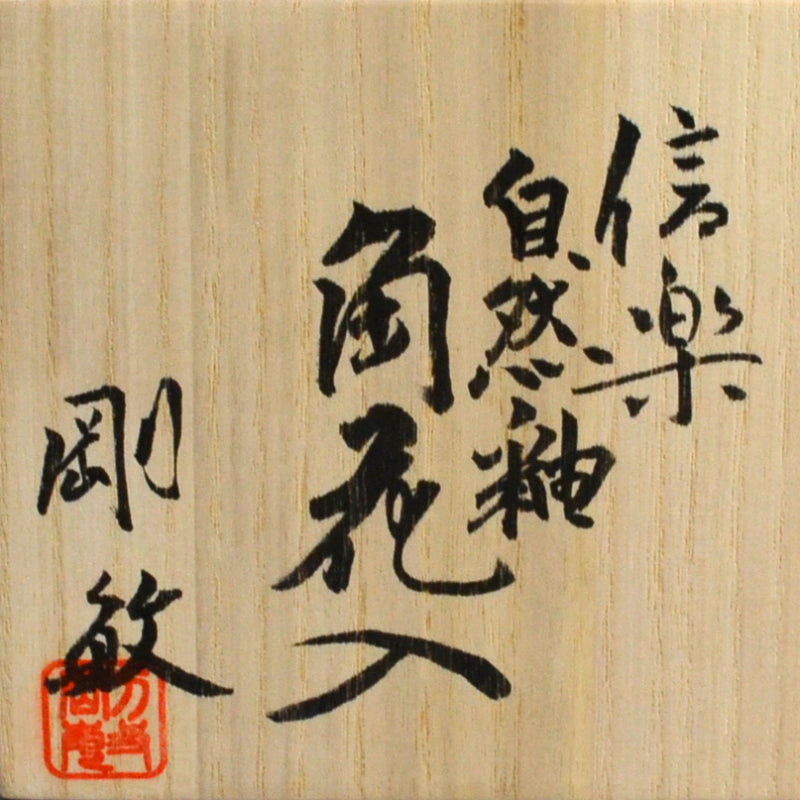 信楽
自然釉
角花入
剛敏